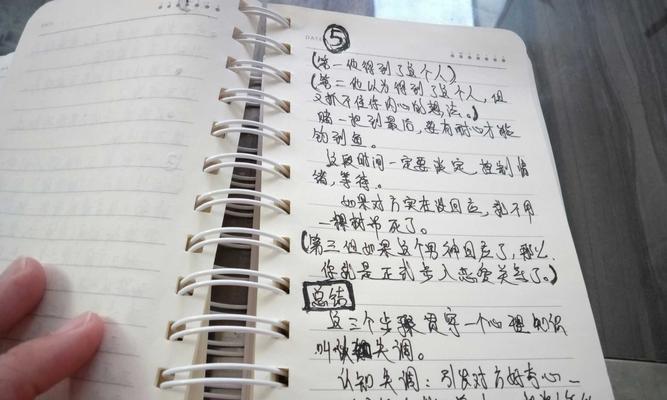 DATE
⑤
(第一他得到了这个人)
(第二他以为得到了这个人,但
又抓不住你内心的想法。)
赌一把到最后,要有耐心才能
钓到鱼。
这段时间一定要淡定,控制情
绪,等待。
如果对方实在没回应,就不用
一棵树吊死了。
(第三但如果这个男神回应了,那么
你就是正式步入恋爱关系了。)
总结
这三个步骤贯穿一个心理知识
叫认知失调。
认知失调:引发对方好奇心一